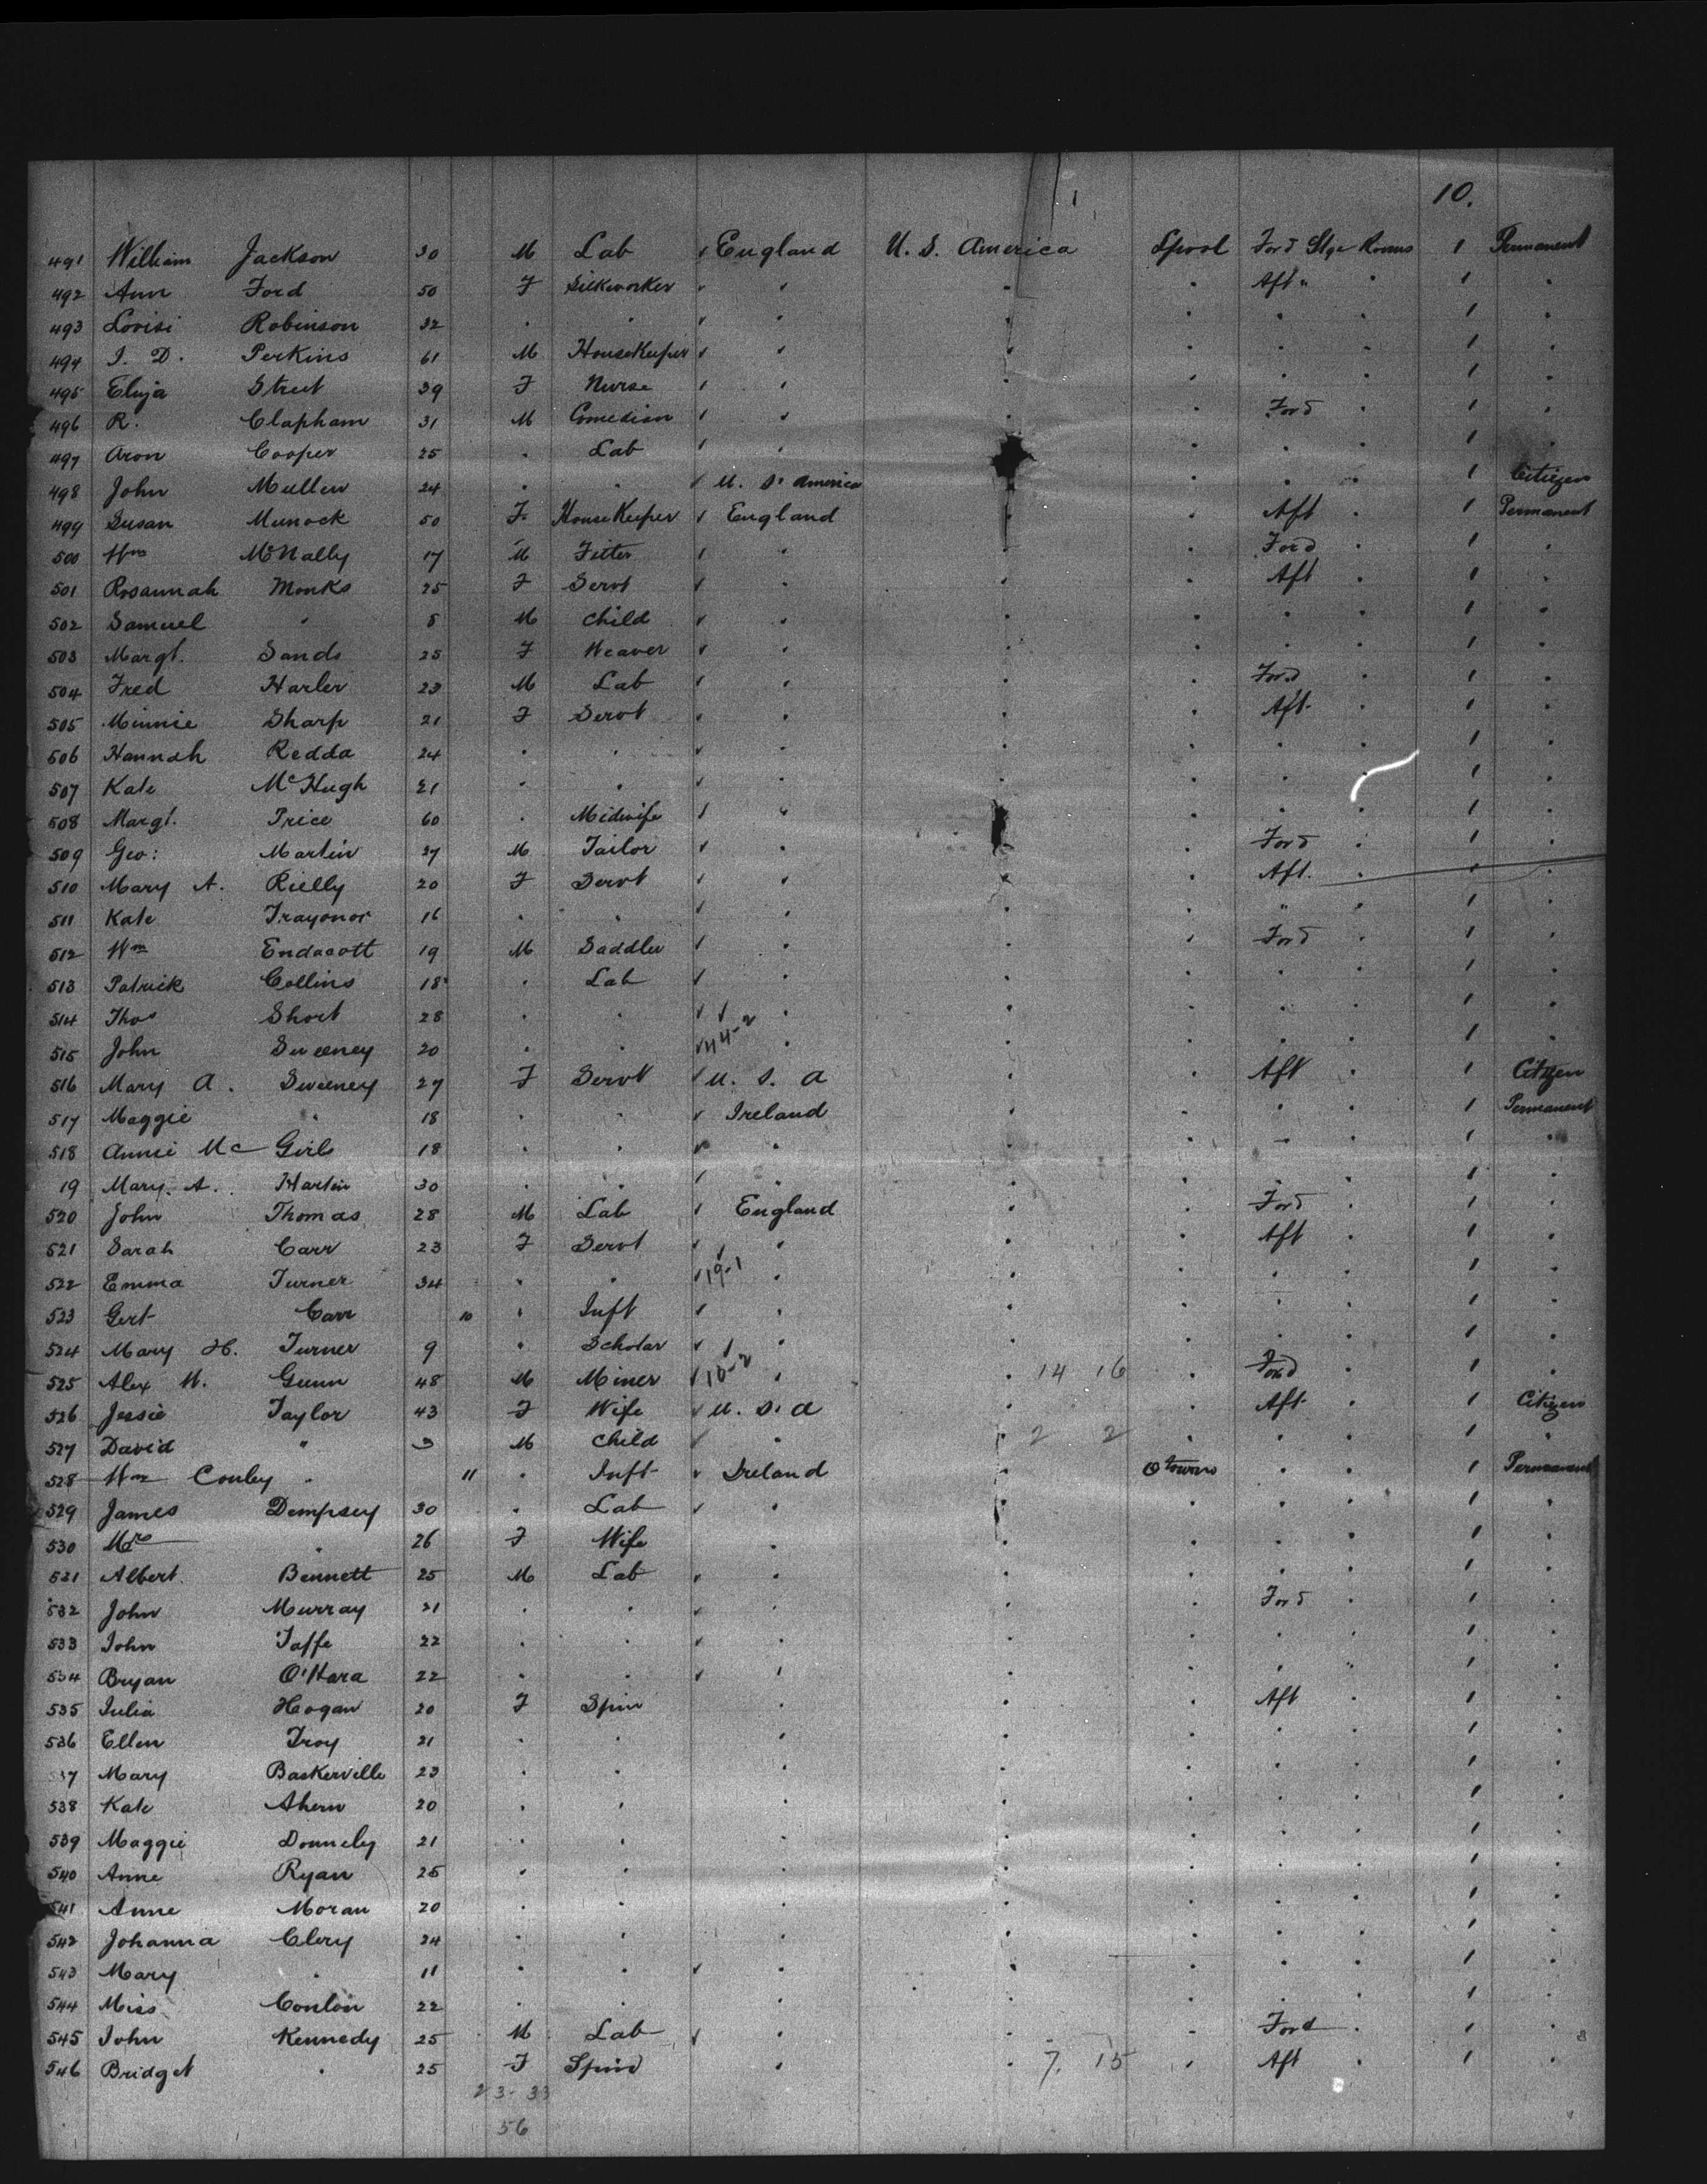 10.
491 William Jackson 30 M Lab England U. S. America Lpool Ford Stge Rooms 1 Permanent
492 Ann Ford 50 F Silkworker " " " Aft " " 1 "
493 Lovisi Robinson 32 " " " " " " " 1 "
494 I. D. Perkins 61 M HouseKeeper " " " " " 1 "
495 Eliza Street 39 F Nurse " " " " " 1 "
496 R. Clapham 31 M Comedian " " " Ford " 1 "
497 Aron Cooper 25 " Lab " " " " " 1 "
498 John Mullen 24 " " U. S. America " " " " 1 Citizen
499 Susan Munock 50 F HouseKeeper England " " Aft " 1 Permanent
500 Wm McNally 17 M Fitter " " " Ford " 1 "
501 Rosannah Monks 25 F Servt " " " Aft " 1 "
502 Samuel " 5 M Child " " " " " 1 "
503 Margt. Sands 25 F Weaver " " " " " 1 "
504 Fred Harler 23 M Lab " " " Ford " 1 "
505 Minnie Sharp 21 F Servt " " " Aft " 1 "
506 Hannah Redda 24 " " " " " " " 1 "
507 Kate McHugh 21 " " " " " " " 1 "
508 Margt. Price 60 " Midwife " " " " " 1 "
509 Geo: Martin 27 M Tailor " " " Ford " 1 "
510 Mary A. Rielly 20 F Servt " " " Aft. " 1 "
511 Kate Traynor 16 " " " " " " " 1 "
512 Wm Endacott 19 M Saddler " " " Ford " 1 "
513 Patrick Collins 18 " Lab " " " " " 1 "
514 Thos Short 28 " " " " " " " 1 "
515 John Sweeney 20 " " 44-2 " " " " " 1 "
516 Mary A. Sweeney 27 F Servt U. S. A " " Aft " 1 Citizen
517 Maggie " 18 " " Ireland " " " " 1 Permanent
518 Annie Mc Girls 18 " " " " " " " 1 "
19 Mary. A. Hartin 30 " " " " " " " 1 "
520 John Thomas 28 M Lab England " " Ford " 1 "
521 Sarah Carr 23 F Servt " " " Aft " 1 "
522 Emma Turner 34 " " 19-1 " " " " " 1 "
523 Gert Carr 10 " Inft " " " " " 1 "
524 Mary H. Turner 9 " Scholar " " " " " 1 "
525 Alex W. Gunn 48 M Miner 10-2 " " 14 16 " Ford " 1 "
526 Jessie Taylor 43 F Wife U. S. A " " Aft " 1 Citizen
527 David " 3 M Child " " 2 2 " " " 1 "
528 Wm Conley " 11 " Inft Ireland " Qtown " " 1 Permanent
529 James Dempsey 30 " Lab " " " " " 1 "
530 Mrs " 26 F Wife " " " " " 1 "
531 Albert Bennett 25 M Lab " " " " " 1 "
532 John Murray 21 " " " " " Ford " 1 "
533 John Taffe 22 " " " " " " " 1 "
534 Bryan O'Hara 22 " " " " " " " 1 "
535 Julia Hogan 20 F Spin " " " Aft " 1 "
536 Ellen Troy 21 " " " " " " " 1 "
537 Mary Baskerville 23 " " " " " " " 1 "
538 Kate Ahern 20 " " " " " " " 1 "
539 Maggie Donnely 21 " " " " " " " 1 "
540 Anne Ryan 25 " " " " " " " 1 "
541 Anne Moran 20 " " " " " " " 1 "
542 Johanna Clery 24 " " " " " " " 1 "
543 Mary " 11 " " " " " " " 1 "
544 Miss Conlon 22 " " " " " " " 1 "
545 John Kennedy 25 M Lab " " " Ford " 1 "
546 Bridget " 25 F Spin " " 7. 15 " Aft " 1 "
23-33
56